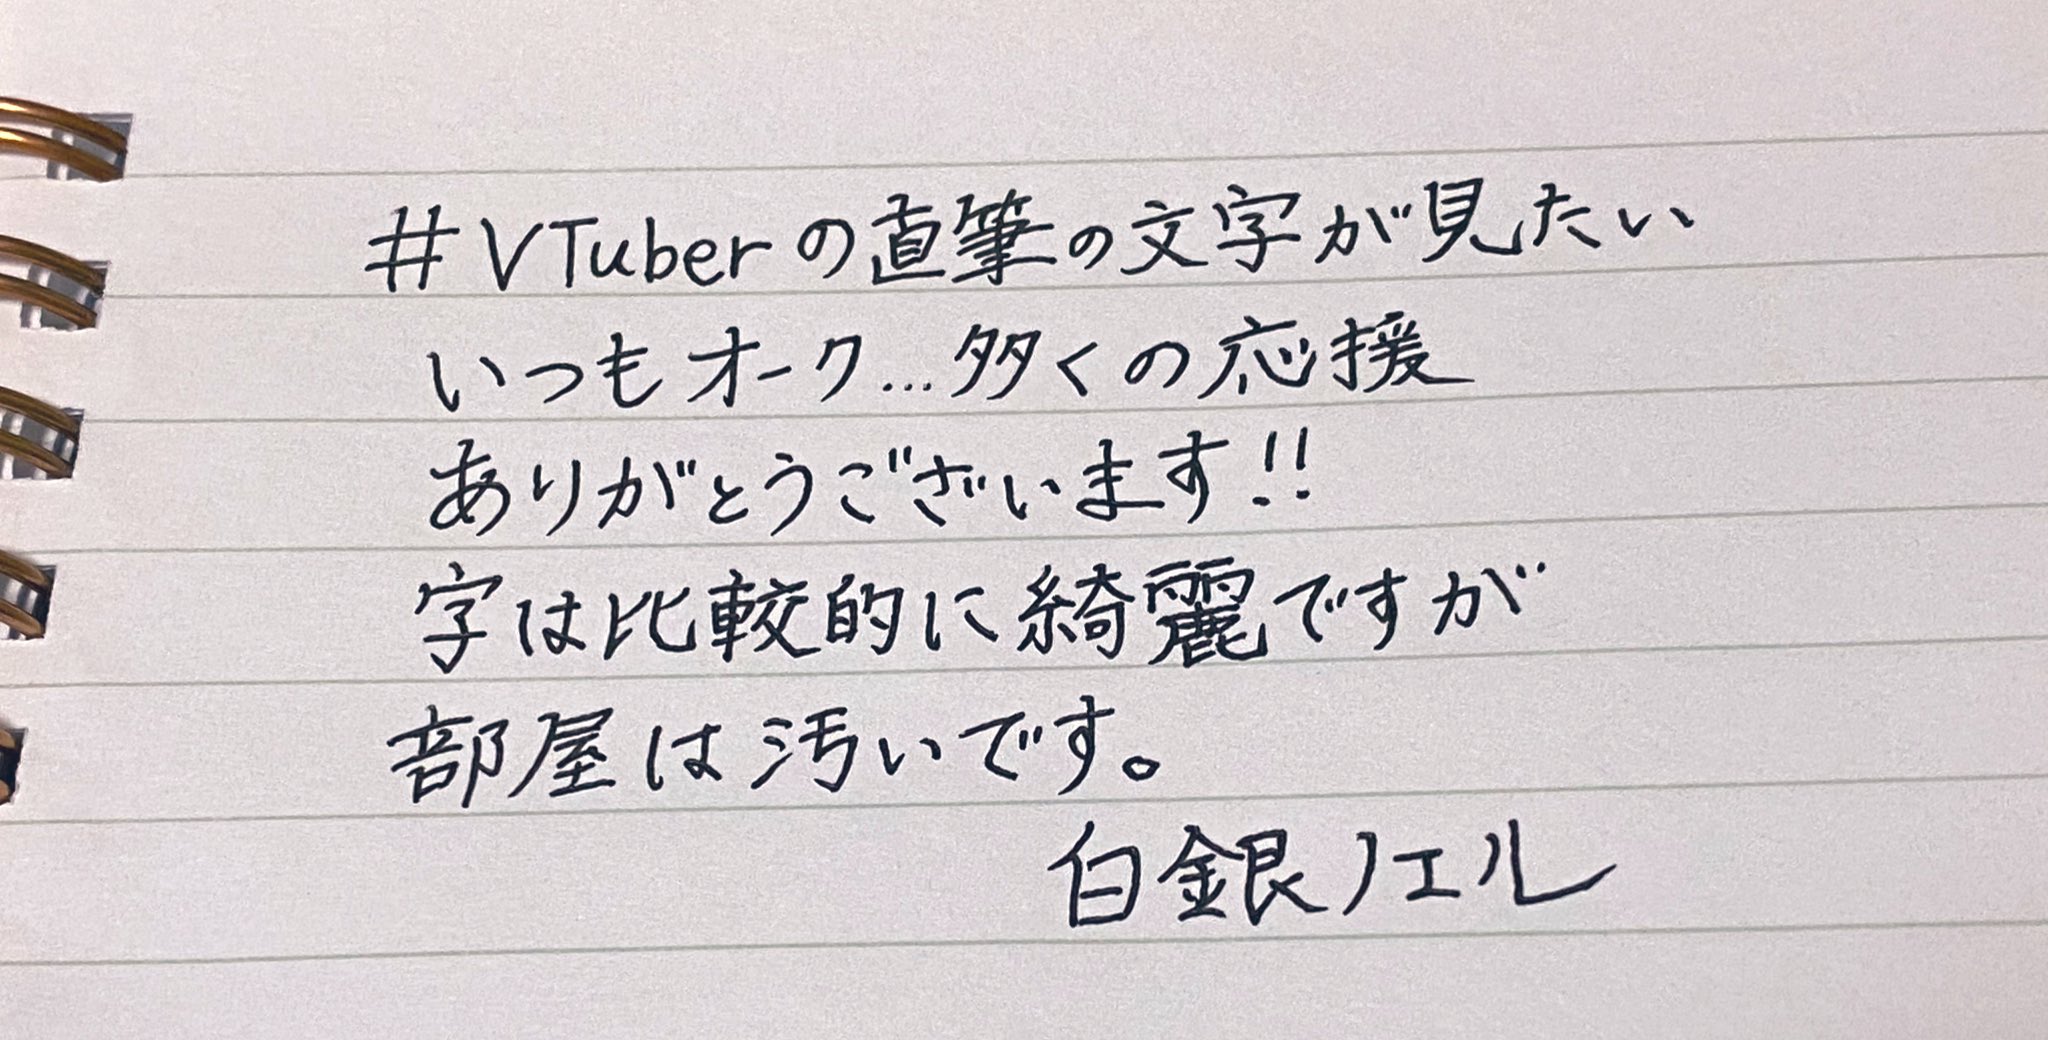 #VTuberの直筆の文字が見たい
いつもオーク…多くの応援
ありがとうございます!!
字は比較的に綺麗ですが
部屋は汚いです。
白銀ノエル